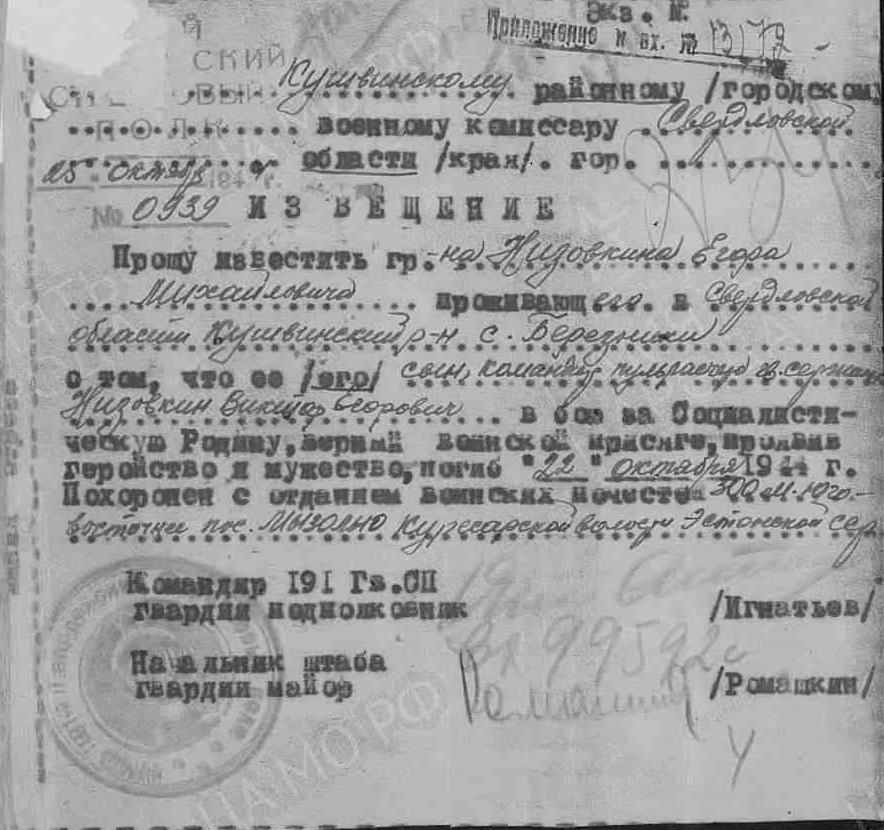 Экз. №
Приложение к вх. № 13172
СКИЙ
Кушвинскому районному /городском
ПОЛК военному комиссару Свердловской
25 октября 194 г. области /края/. гор.
№ 0939 ИЗВЕЩЕНИЕ
Прошу известить гр.-на Низовкина Егора
Михайловича проживающего в Свердловской
области Кушвинский р-н с.
о том, что ее /его/ сын, командир гв. сержант
Низовкин Виктор Егорович в бою за Социалисти-
ческую Родину, верный воинской присяге, проявив
геройство и мужество, погиб "22" октября 1944 г.
Похоронен с отданием воинских почестей 300 м. юго-
восточнее пос. волости Эстонской сср
Командир 191 Гв.СП
гвардии подполковник /Игнатьев/
99592с
Начальник штаба
гвардии майор Ромашкин /Ромашкин/